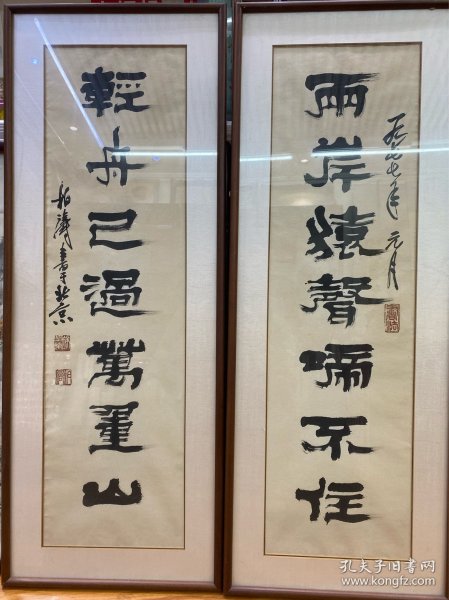 兩岸猿聲啼不住
一九七七年元月
輕舟已過萬重山
柏濤書于北京
孔夫子旧书网
www.kongfz.com